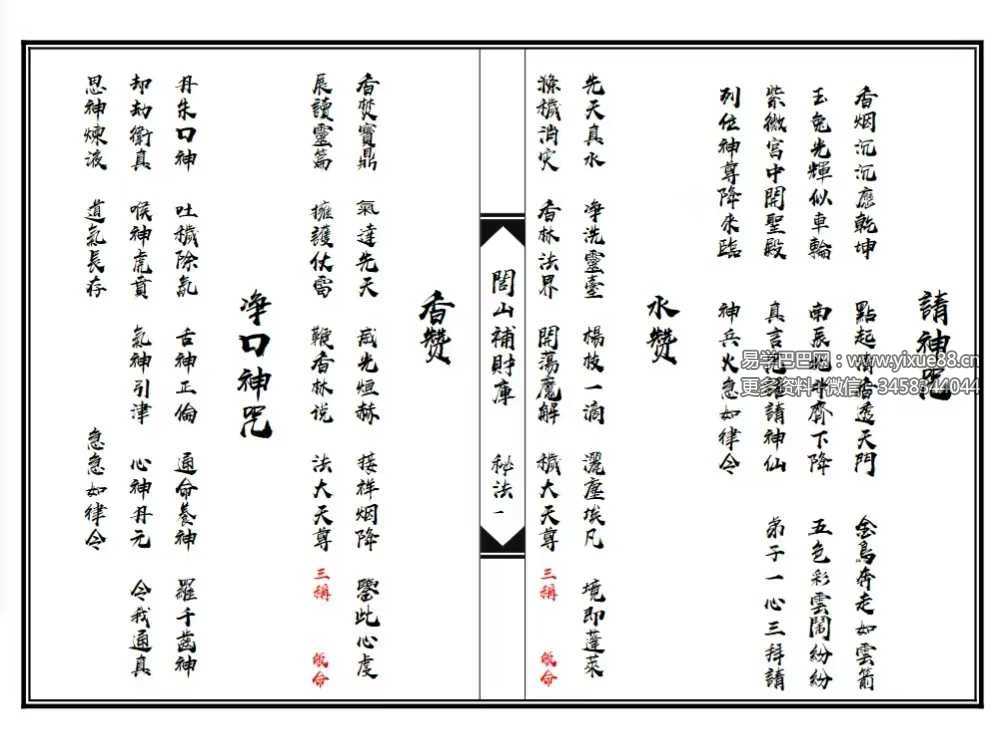 請神咒
香烟沉沉應乾坤 點起清香透天門 金烏奔走如雲箭
玉兔光輝似車輪 南辰北斗齊下降 五色彩雲鬧紛紛
紫微宮中開聖殿 真言咒語請神仙 弟子一心三拜請
列位神尊降來臨 神兵火急如律令
水赞
先天真水 净洗靈臺 楊枝一滴 灑塵埃凡 境即蓬萊
滌穢消灾 香林法界 開蕩魔解 穢大天尊 三稱 皈命
閭山補財庫 秘法一
香赞
香焚寶鼎 氣達先天 威光烜赫 接祥烟降 鑒此心虔
展讀靈篇 擁護仗雷 鞭香林説 法大天尊 三稱 皈命
净口神咒
丹朱口神 吐穢除氛 舌神正倫 通命養神 羅千齒神
却劫衛真 喉神虎賁 氣神引津 心神丹元 令我通真
思神煉液 道氣長存 急急如律令
易学巴巴网：www.yixue88.cn
更多资料+微信：3458344044